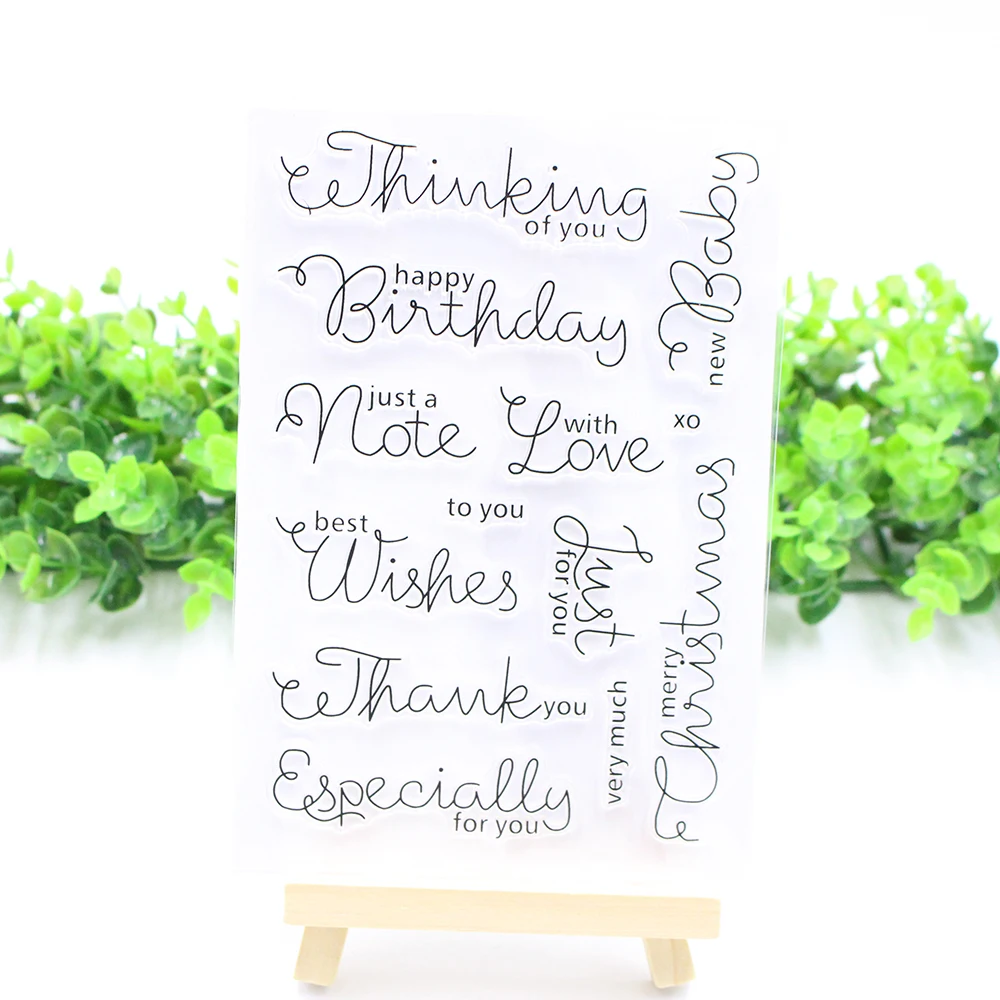 Thinking
of you
happy
Birthday
new Baby
just a
Note
with
Love
xo
to you
best
Wishes
Just
for you
merry
Christmas
Thank you
very much
Especially
for you